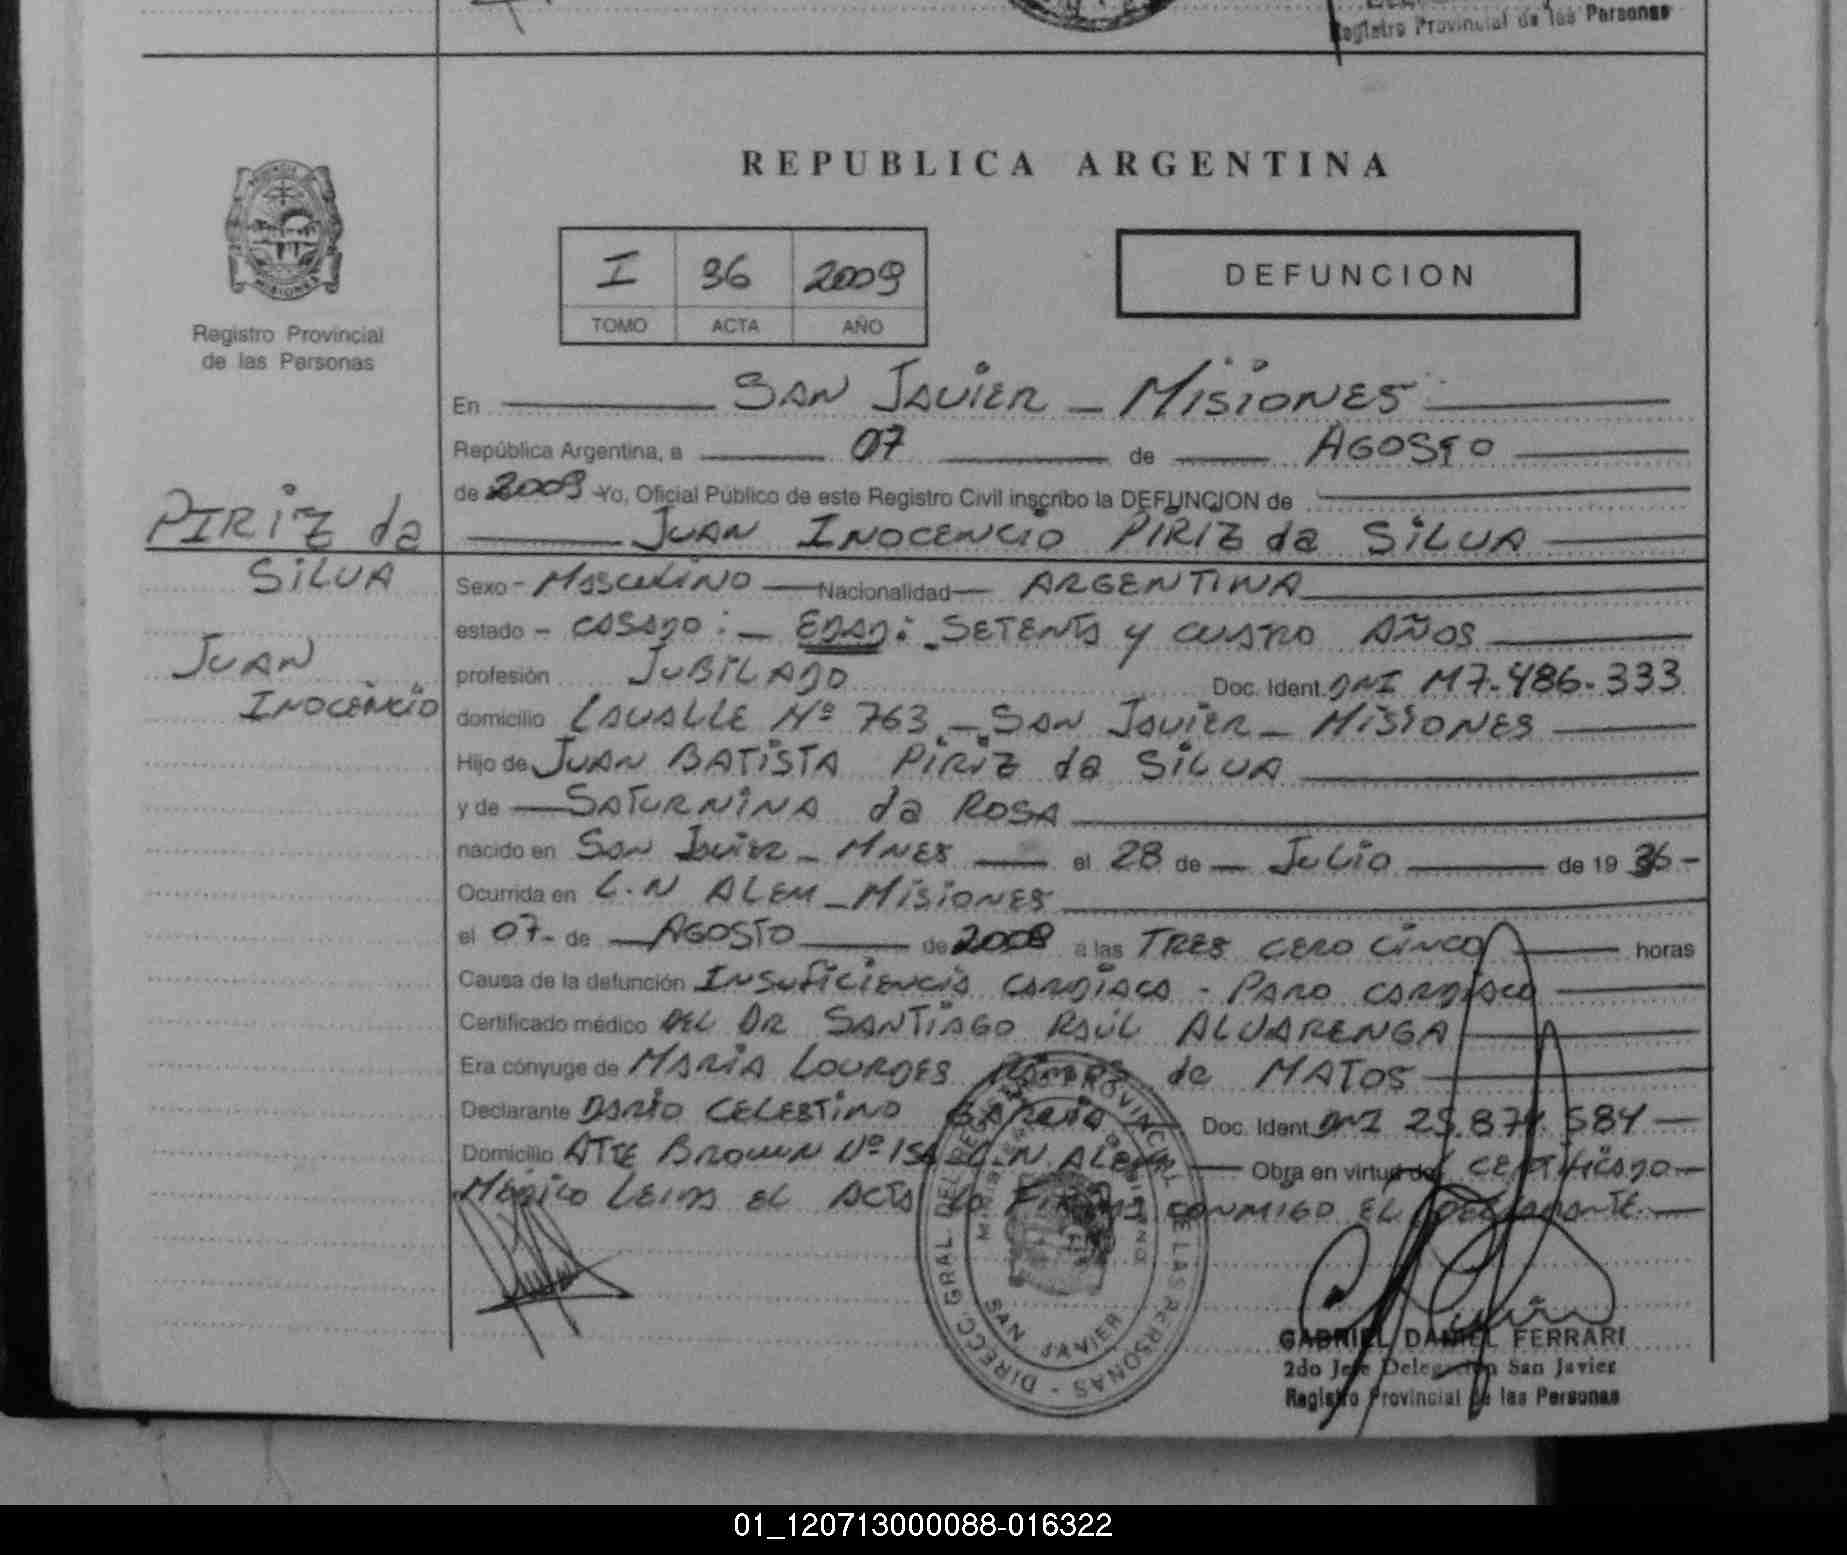 Registro Provincial de las Personas
REPUBLICA ARGENTINA
PROVINCIA
MISIONES
Registro Provincial
de las Personas
I 96 2009
TOMO ACTA AÑO
DEFUNCION
En SAN JAVIER - MISIONES
República Argentina, a 07 de AGOSTO
de 2009 Yo, Oficial Público de este Registro Civil inscribo la DEFUNCION de
PIRIZ da
SILVA
JUAN
INOCENCIO
JUAN INOCENCIO PIRIZ da SILVA
Sexo - MASCULINO - Nacionalidad - ARGENTINA
estado - CASADO : - EDAD: SETENTA y CUATRO AÑOS
profesión JUBILADO Doc. Ident. DNI M7.486.333
domicilio LAVALLE Nº 763 - SAN JAVIER - MISIONES
Hijo de JUAN BATISTA PIRIZ da SILVA
y de SATURNINA da ROSA
nacido en SAN JAVIER - MNES el 28 de JULIO de 19 36 -
Ocurrida en L.N ALEM - MISIONES
el 07 - de AGOSTO de 2009 a las TRES CERO CINCO horas
Causa de la defunción INSUFICIENCIA CARDIACA - PARO CARDIACO
Certificado médico DEL DR SANTIAGO RAÚL ALVARENGA
Era cónyuge de MARIA LOURDES RAMOS de MATOS
Declarante DARIO CELESTINO GARCIA Doc. Ident. DNI 25.874.584
Domicilio ATTE BROWN Nº L.N. ALEM Obra en virtud del CERTIFICADO
MEDICO LEIDA EL ACTA LA FIRMA CONMIGO EL DECLARANTE
DIRECC. GRAL. DEL REGISTRO PROVINCIAL DE LAS PERSONAS
SAN JAVIER
GABRIEL DANIEL FERRARI
2do Jefe Delegación San Javier
Registro Provincial de las Personas
01_120713000088-016322